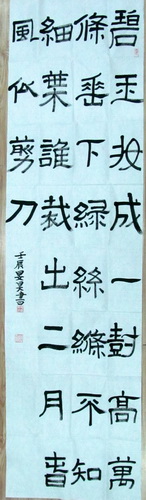 碧玉妝成一尌高萬
條垂下緑絲縧不知
細葉誰裁出二月春
風似剪刀
壬辰